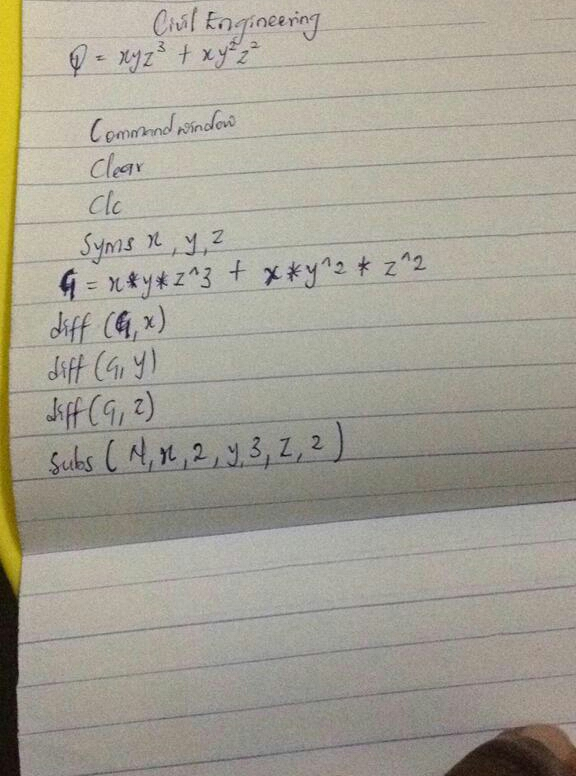 Civil Engineering
φ = xyz³ + xy²z²
Command window
Clear
Clc
Syms x, y, z
G = x*y*z^3 + x*y^2 * z^2
diff (G, x)
diff (G, y)
diff (G, z)
Subs ( N, x, 2, y, 3, z, 2 )